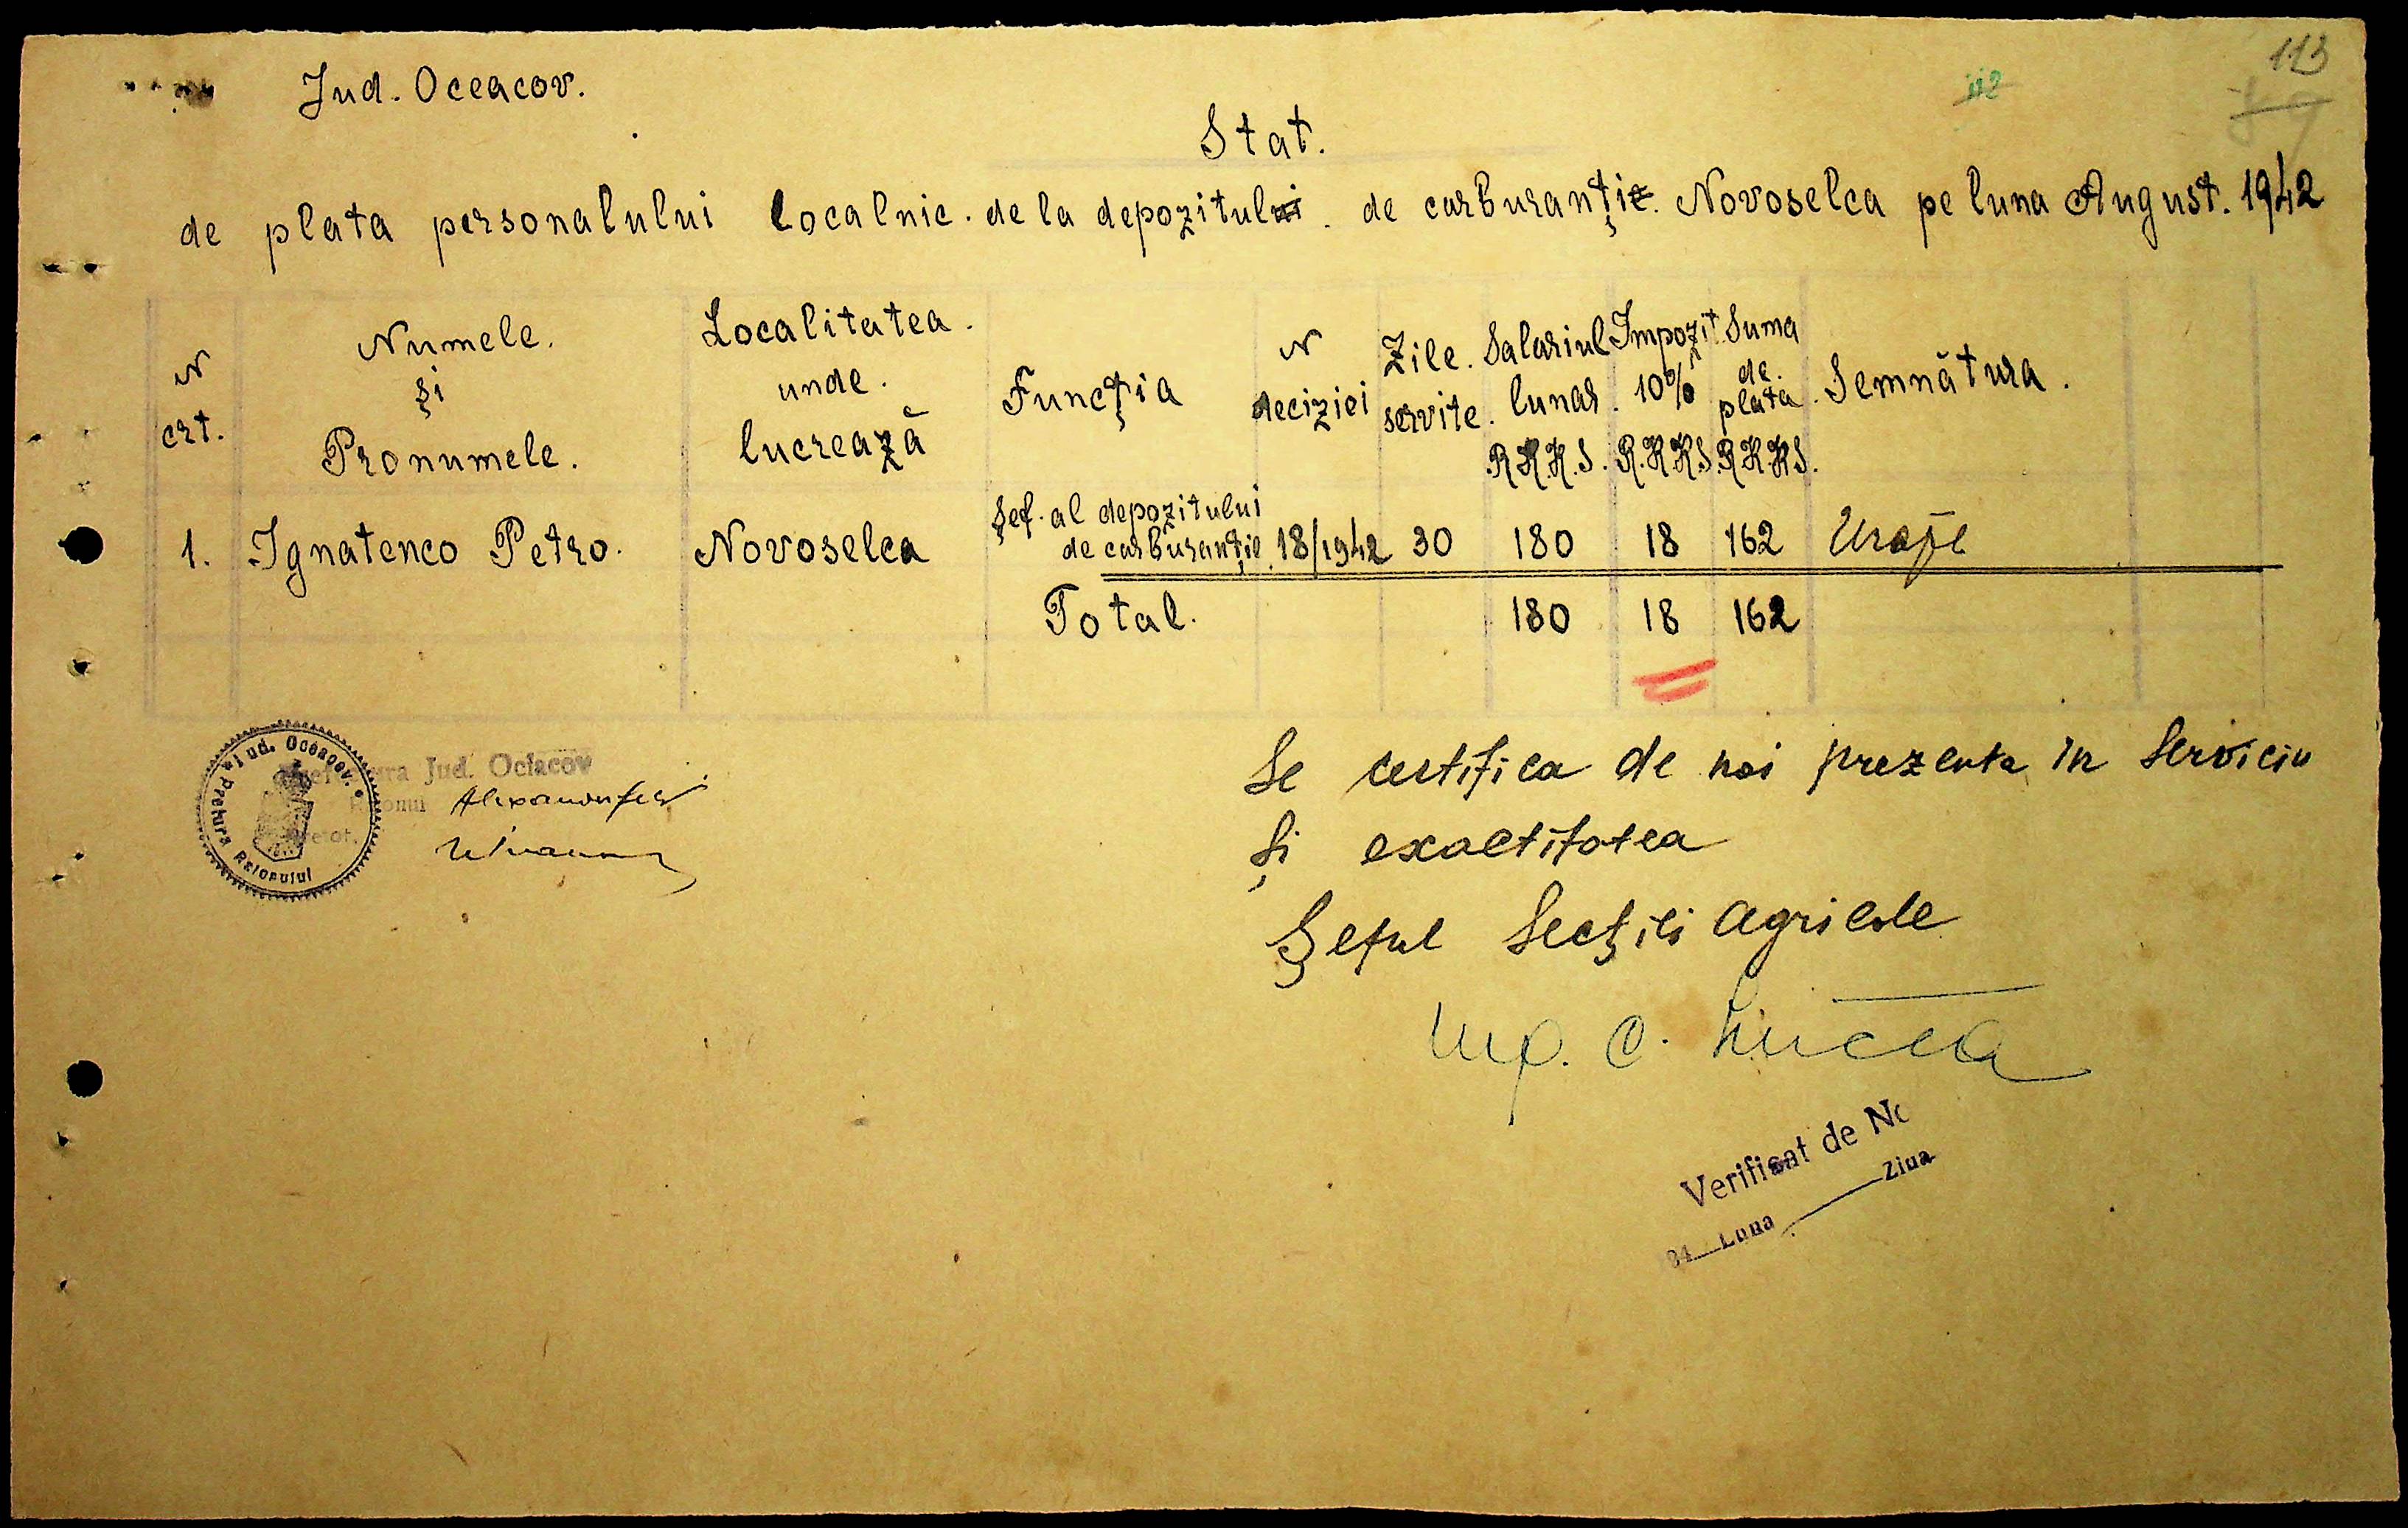 113
112
Jud. Oceacov.
Stat.
de plata personalului localnic. de la depozitului. de carburanţie. Novoselca pe luna August. 1942
N crt. Numele. şi Pronumele. Localitatea. unde. lucrează Funcţia N deciziei Zile. servite. Salariul lunar. R.K.K.S. Impozit 10% R.K.K.S. Suma de. plata. R.K.K.S. Semnătura.
1. Ignatenco Petro. Novoselca Şef. al depozitului de carburanţie 18/1942 30 180 18 162
Total. 180 18 162
Pretura Raionului
Jud. Oceacov.
Jud. Ociacov
Se certifica de noi prezenta in Serviciu
Şi exactitatea
Şeful Secţiei agricole
C.
Verificat de
Luna Ziua